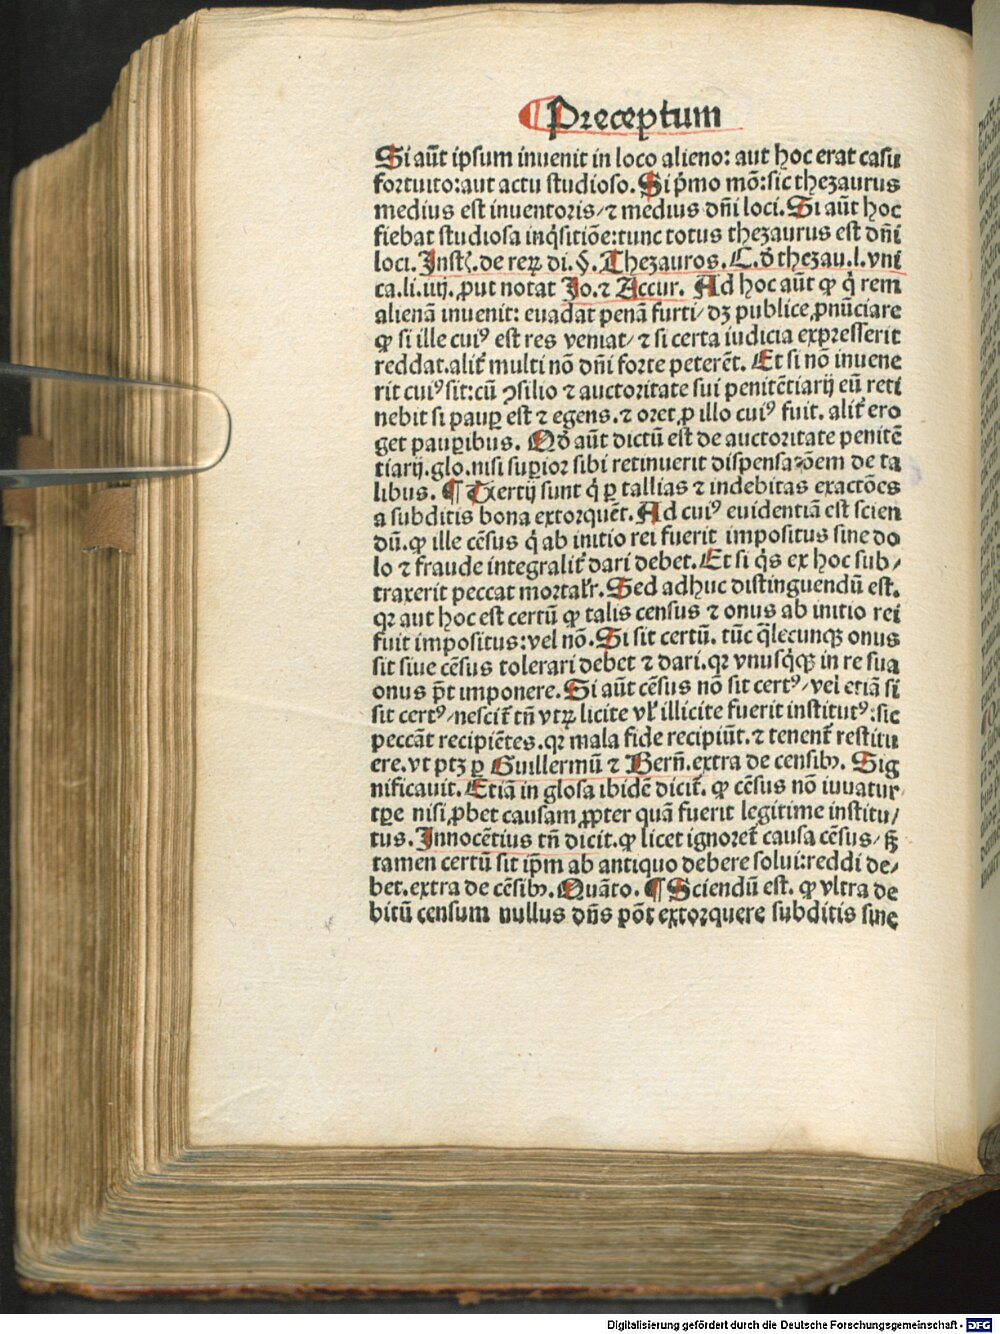 ¶ Preceptum
Si aūt ipsum inuenit in loco alieno: aut hoc erat casu
fortuito: aut actu studioso. Si p̄mo mō: sic thezaurus
medius est inuentoris / ⁊ medius dn̄i loci. Si aūt hoc
fiebat studiosa inq̄sitiōe: tunc totus thezaurus est dn̄i
loci. Insti. de reꝝ di. §. Thezauros. C. d̄ thezau. l. vni
ca. li. iiij. ꝓut notat Jo. ⁊ Accur. Ad hoc aūt ꝙ q̄ rem
alienā inuenit: euadat penā furti / dꝫ publice ꝓnūciare
ꝙ si ille cuiꝰ est res veniat / ⁊ si certa iudicia expresserit
reddat. alit̄ multi nō dn̄i forte peterēt. Et si nō inuene
rit cuiꝰ sit: cū ꝯsilio ⁊ auctoritate sui penitētiarij eū reti
nebit si pauꝑ est ⁊ egens. ⁊ oret ꝓ illo cuiꝰ fuit. alit̄ ero
get pauꝑibus. Qd̄ aūt dictū est de auctoritate penitē
tiarij. glo. nisi suꝑior sibi retinuerit dispensaꝛōem de ta
libus. ¶ Tertij sunt q̄ ꝑ tallias ⁊ indebitas exactōes
a subditis bona extorquēt. Ad cuiꝰ euidentiā est scien
dū. ꝙ ille cēsus q̄ ab initio rei fuerit impositus sine do
lo ⁊ fraude integralit̄ dari debet. Et si q̄s ex hoc sub /
traxerit peccat mortalr̄. Sed adhuc distinguendū est.
qꝛ aut hoc est certū ꝙ talis census ⁊ onus ab initio rei
fuit impositus: vel nō. Si sit certū. tūc q̄lecunqꝫ onus
sit siue cēsus tolerari debet ⁊ dari. qꝛ vnusq̄qꝫ in re sua
onus p̄t imponere. Si aūt cēsus nō sit certꝰ / vel etiā si
sit certꝰ / nescit̄ tn̄ vtꝝ licite vl̓ illicite fuerit institutꝰ: sic
peccāt recipiētes. qꝛ mala fide recipiūt. ⁊ tenent̄ restitu
ere. vt ptꝫ ꝑ Guillermū ⁊ Bern̄. extra de censibꝫ. Sig
nificauit. Etiā in glosa ibidē dicit̄. ꝙ cēsus nō iuuatur
tꝑe nisi ꝓbet causam ꝓpter quā fuerit legitime institu /
tus. Innocētius tn̄ dicit. ꝙ licet ignoret̄ causa cēsus / sꝫ
tamen certū sit ip̄m ab antiquo debere solui: reddi de /
bet. extra de cēsibꝫ. Quāto. ¶ Sciendū est. ꝙ vltra de
bitū censum nullus dn̄s pōt extorquere subditis sine
Digitalisierung gefördert durch die Deutsche Forschungsgemeinschaft - DFG